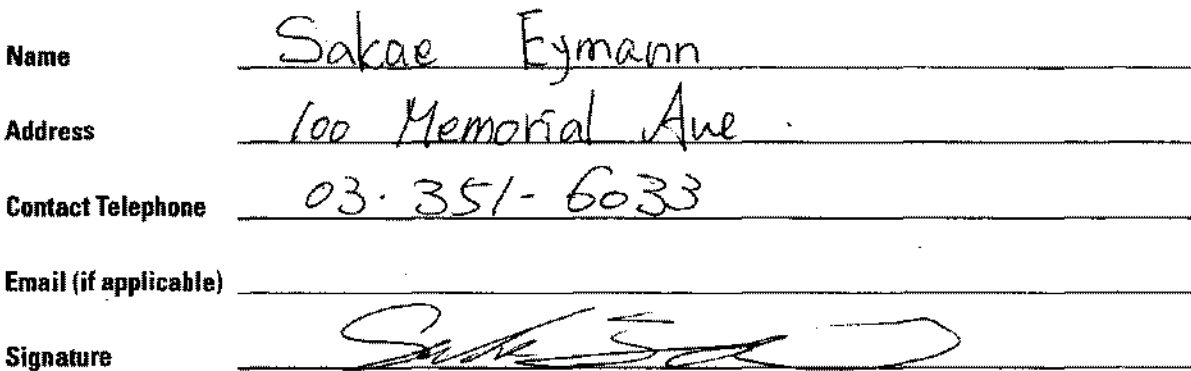 Name Sakae Eymann
Address 100 Memorial Ave.
Contact Telephone 03.351-6033
Email (if applicable)
Signature